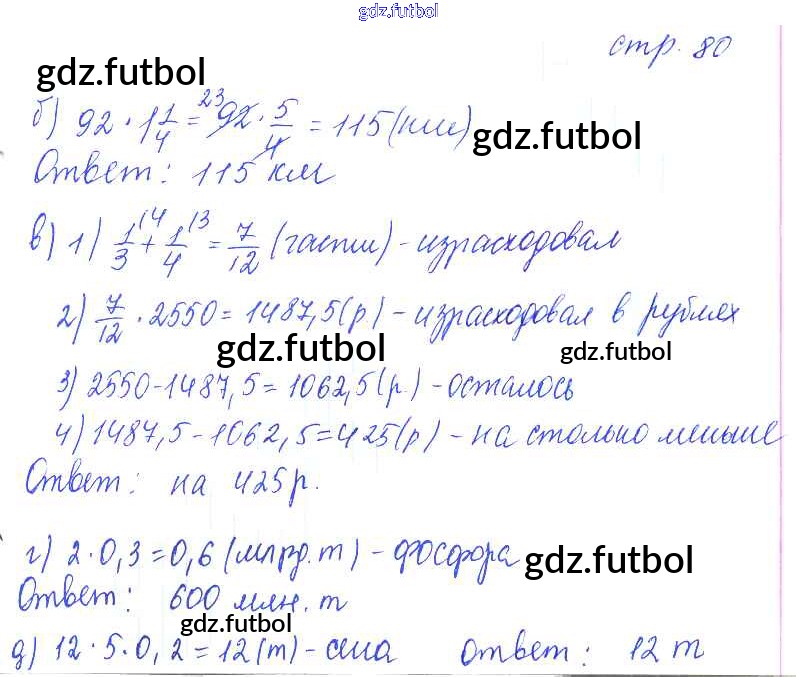 gdz.futbol
стр. 80
gdz.futbol
б) 92 · 1 1/4 = 92 23 · 5/4 = 115 (км)
gdz.futbol
Ответ: 115 км
в) 1) 1/3 (4 + 1/4 (3 = 7/12 (части) - израсходовал
2) 7/12 · 2550 = 1487,5 (р) - израсходовал в рублях
gdz.futbol
gdz.futbol
3) 2550 - 1487,5 = 1062,5 (р.) - осталось
4) 1487,5 - 1062,5 = 425 (р) - на столько меньше
Ответ: на 425 р.
г) 2 · 0,3 = 0,6 (млрд. т) - фосфора
gdz.futbol
Ответ: 600 млн. т
gdz.futbol
д) 12 · 5 · 0,2 = 12 (т) - сена Ответ: 12 т